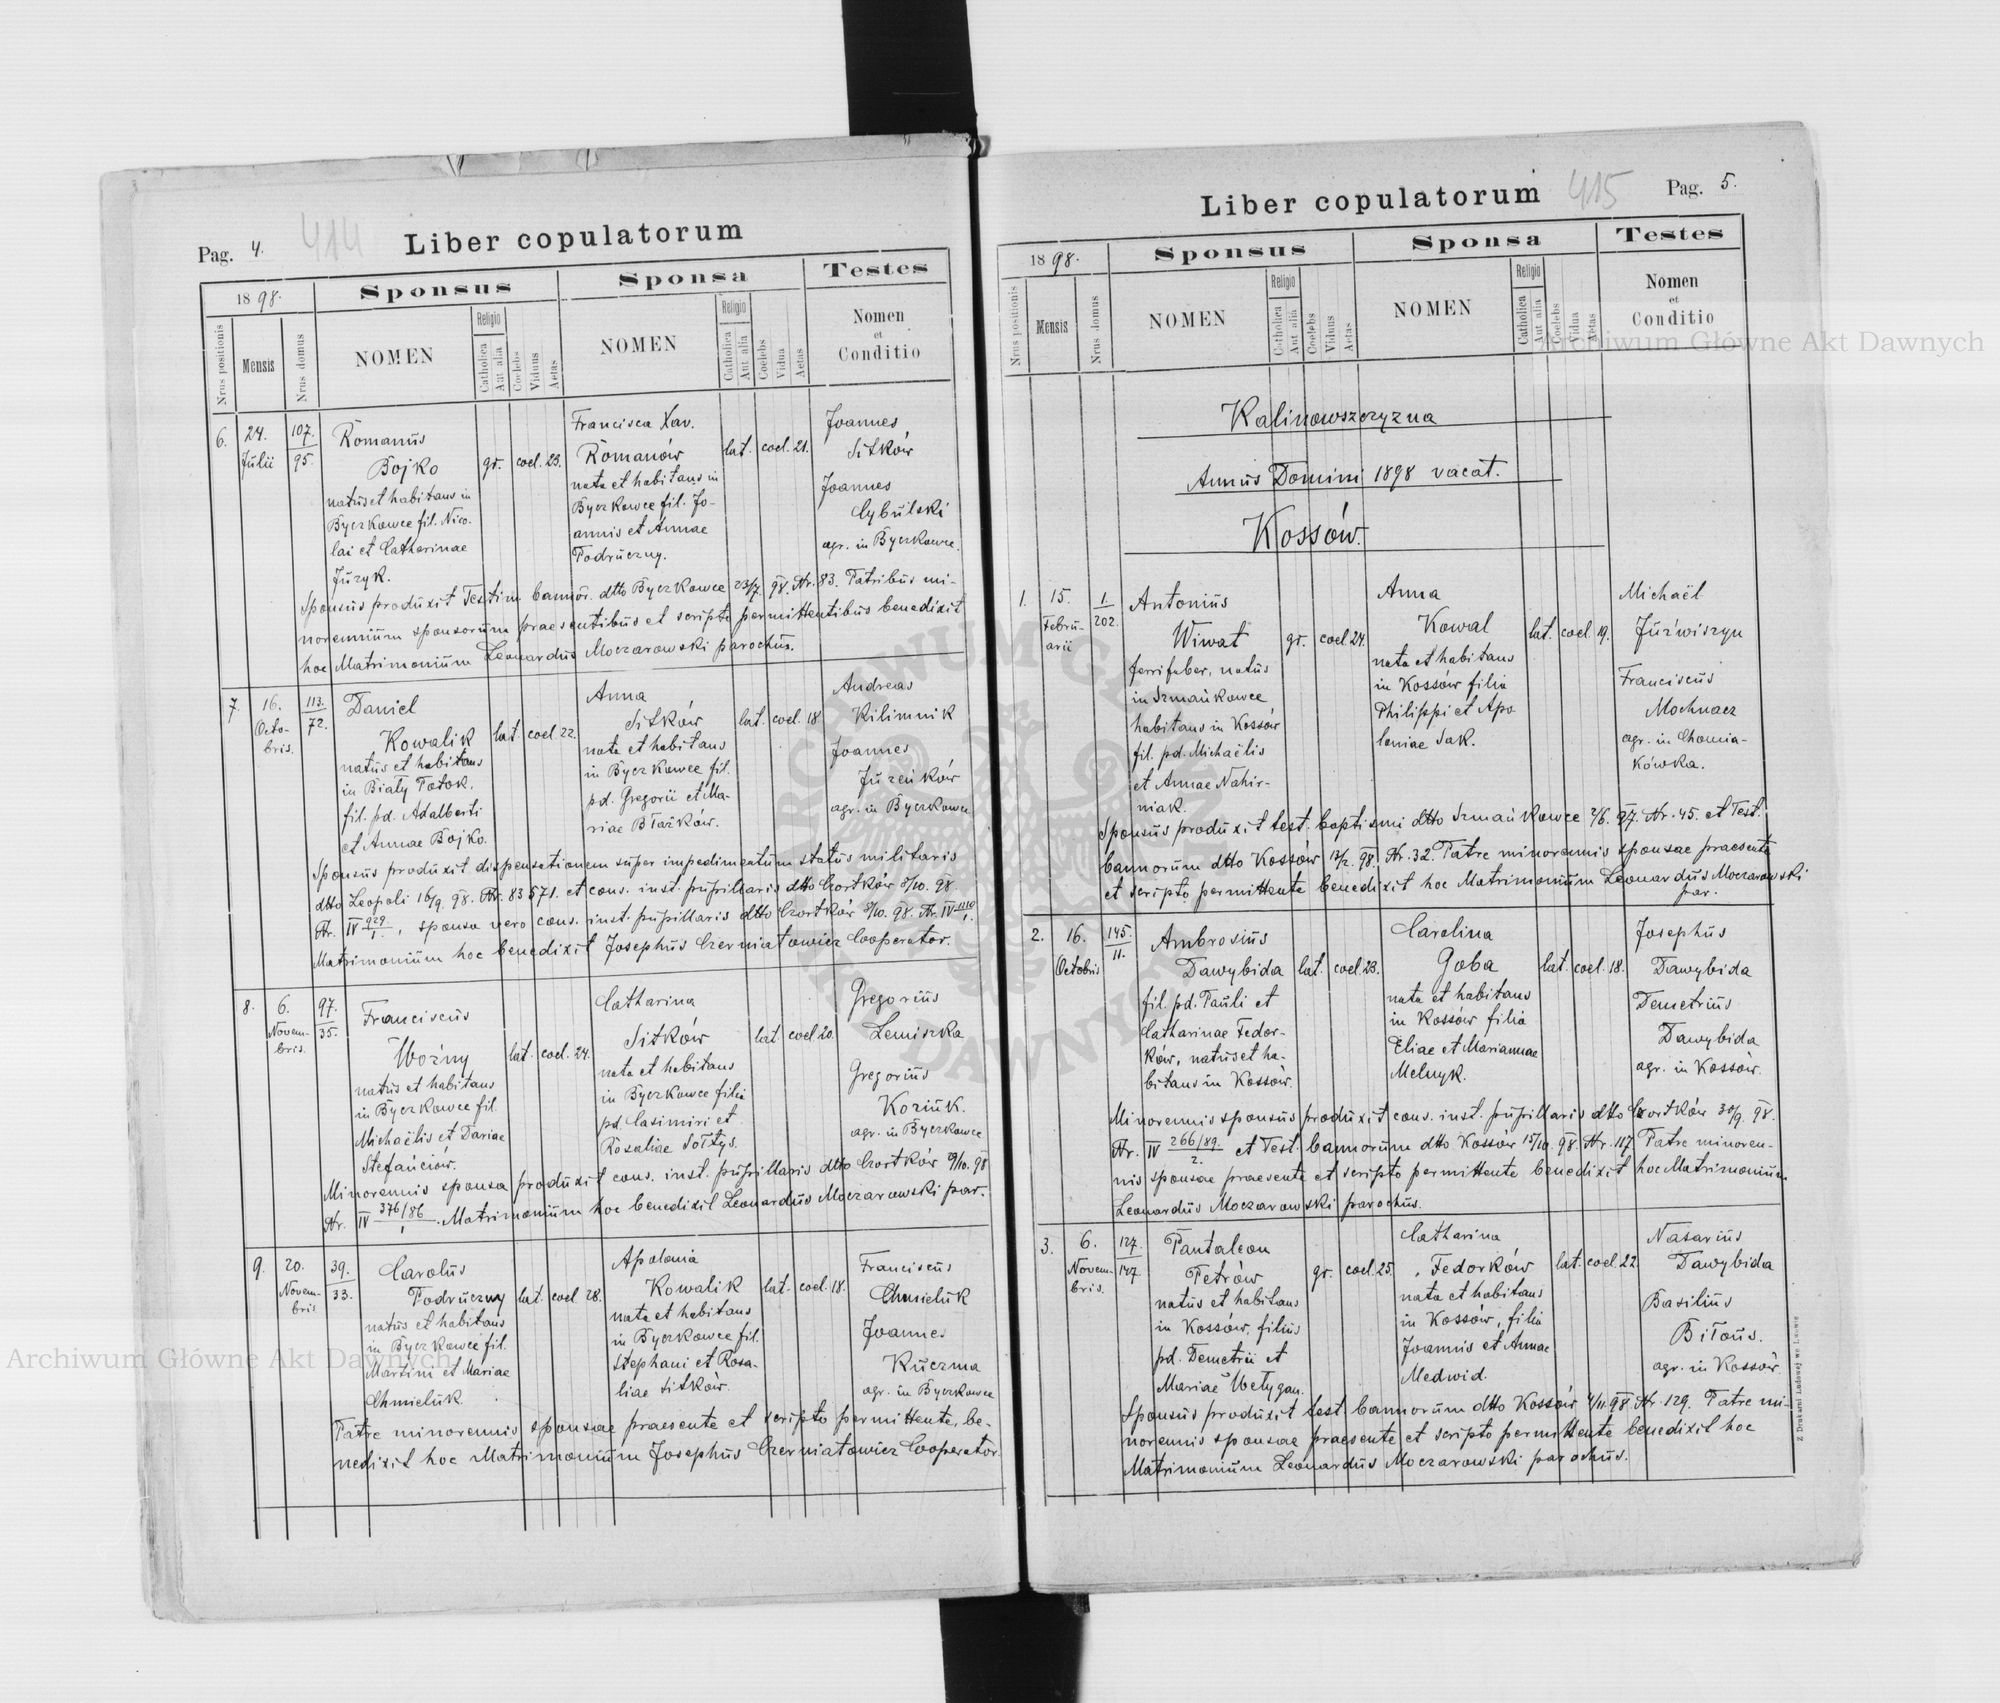 Pag. 4.
414
Liber copulatorum
1898.
Sponsus
Sponsa
Testes
Nrus positionis
Mensis
Nrus domus
NOMEN
Religio
Catholica
Aut alia
Coelebs
Viduus
Aetas
NOMEN
Religio
Catholica
Aut alia
Coelebs
Vidua
Aetas
Nomen
et
Conditio
6.
24.
Julii
107.
95.
Romanus
Bojko
natus et habitans in
Byczkowce fil. Nico-
lai et Catharinae
Juzyk.
gr.
coel.
23.
Francisca Xav.
Romanów
nata et habitans in
Byczkowce fil. Jo-
annis et Annae
Podruczny.
lat.
coel.
21.
Joannes
Sitków
Joannes
Cybulski
agr. in Byczkowce.
Sponsus produxit Testim. bannor. dtto Byczkowce 23/7. 98. Nr. 83. Patribus mi-
norennium sponsorum praesentibus et scripto permittentibus benedixit
hoc Matrimonium Leonardus Moczarowski parochus.
7.
16.
Octo-
bris.
113.
72.
Daniel
Kowalik
natus et habitans
in Biały Potok.
fil. pd. Adalberti
et Annae Bojko.
lat.
coel.
22.
Anna
Sitków
nata et habitans
in Byczkowce fil.
pd. Gregorii et Ma-
riae Błażków.
lat.
coel.
18.
Andreas
Kilimnik
Joannes
Juzeńków
agr. in Byczkowce
Sponsus produxit dispensationem super impedimentum status militaris
dtto Leopoli 16/9. 98. Nr. 83571. et cons. inst. pupillaris dtto Czortków 8/10. 98.
Nr. IV 929/1, sponsa vero cons. inst. pupillaris dtto Czortków 8/10. 98. Nr. IV 1110/1.
Matrimonium hoc benedixit Josephus Czerniatowicz Cooperator.
8.
6.
Novem-
bris.
97.
35.
Franciscus
Woźny
natus et habitans
in Byczkowce fil.
Michaëlis et Dariae
Stefańciów.
lat.
coel.
24.
Catharina
Sitków
nata et habitans
in Byczkowce filia
pd. Casimiri et
Rosaliae Sołtys.
lat.
coel.
20.
Gregorius
Lemiszka
Gregorius
Koziuk.
agr. in Byczkowce
Minorennis sponsa produxit cons. inst. pupillaris dtto Czortków 29/10. 98
Nr. IV 376/86/1. Matrimonium hoc benedixit Leonardus Moczarowski par.
9.
20.
Novem-
bris
39.
33.
Carolus
Podruczny
natus et habitans
in Byczkowce fil.
Martini et Mariae
Chmieluk.
lat.
coel.
28.
Apolonia
Kowalik
nata et habitans
in Byczkowce fil.
Stephani et Rosa-
liae Sitków.
lat.
coel.
18.
Franciscus
Chmieluk
Joannes
Kuczma
agr. in Byczkowce
Patre minorennis sponsae praesente et scripto permittente, be-
nedixit hoc Matrimonium Josephus Czerniatowicz Cooperator.
Liber copulatorum
415
Pag. 5.
1898.
Sponsus
Sponsa
Testes
Nrus positionis
Mensis
Nrus domus
NOMEN
Religio
Catholica
Aut alia
Coelebs
Viduus
Aetas
NOMEN
Religio
Catholica
Aut alia
Coelebs
Vidua
Aetas
Nomen
et
Conditio
Kalinowszczyzna
Annus Domini 1898 vacat.
Kossów.
1.
15.
Febru-
arii
1
202.
Antonius
Wiwat
ferrifaber, natus
in Szmańkowce
habitans in Kossów
fil. pd. Michaëlis
et Annae Nahir-
niak.
gr.
coel.
24.
Anna
Kowal
nata et habitans
in Kossów filia
Philippi et Apo
loniae Sak.
lat.
coel.
19.
Michaël
Juźwiszyn
Franciscus
Mochnacz
agr. in Chomia-
kówka.
Sponsus produxit test. baptismi dtto Szmańkowce 2/6. 97. Nr. 45. et Test.
bannorum dtto Kossów 12/2. 98. Nr. 32. Patre minorennis sponsae praesente
et scripto permittente benedixit hoc Matrimonium Leonardus Moczarowski
par.
2.
16.
Octobris
145.
11.
Ambrosius
Dawybida
fil. pd. Pauli et
Catharinae Fedor-
ków, natus et ha-
bitans in Kossów.
lat.
coel.
23.
Carolina
Goba
nata et habitans
in Kossów filia
Eliae et Mariannae
Melnyk.
lat.
coel.
18.
Josephus
Dawybida
Demetrius
Dawybida
agr. in Kossów.
Minorennis sponsus produxit cons. inst. pupillaris dtto Czortków 30/9. 98.
Nr. IV 266/89./2. et Test. bannorum dtto Kossów 15/10 98. Nr. 117. Patre minoren-
nis sponsae praesente et scripto permittente benedixit hoc Matrimonium
Leonardus Moczarowski parochus.
3.
6.
Novem-
bris.
127.
147
Pantaleon
Petrów
natus et habitans
in Kossów, filius
pd. Demetrii et
Mariae Wetygan.
gr.
coel.
25.
Catharina
Fedorków
nata et habitans
in Kossów, filia
Joannis et Annae
Medwid.
lat.
coel.
22.
Nasarius
Dawybida
Basilius
Biłous.
agr. in Kossów.
Sponsus produxit test. bannorum dtto Kossów 4/11. 98. Nr. 129. Patre mi-
norennis sponsae praesente et scripto permittente benedixit hoc
Matrimonium Leonardus Moczarowski parochus.
Z Drukarni Ludowej we Lwowie
Archiwum Główne Akt Dawnych
Archiwum Główne Akt Dawnych
ARCHIWUM GŁÓWNE AKT DAWNYCH